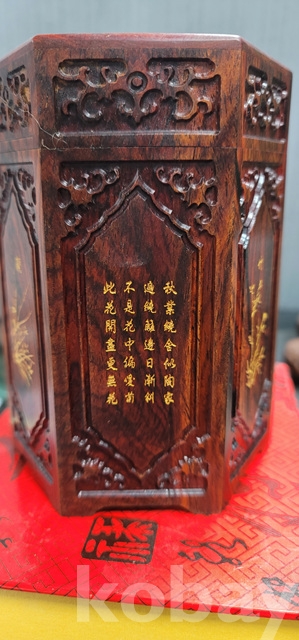 秋叢繞舍似陶家
遍繞籬邊日漸斜
不是花中偏愛菊
此花開盡更無花
kobay